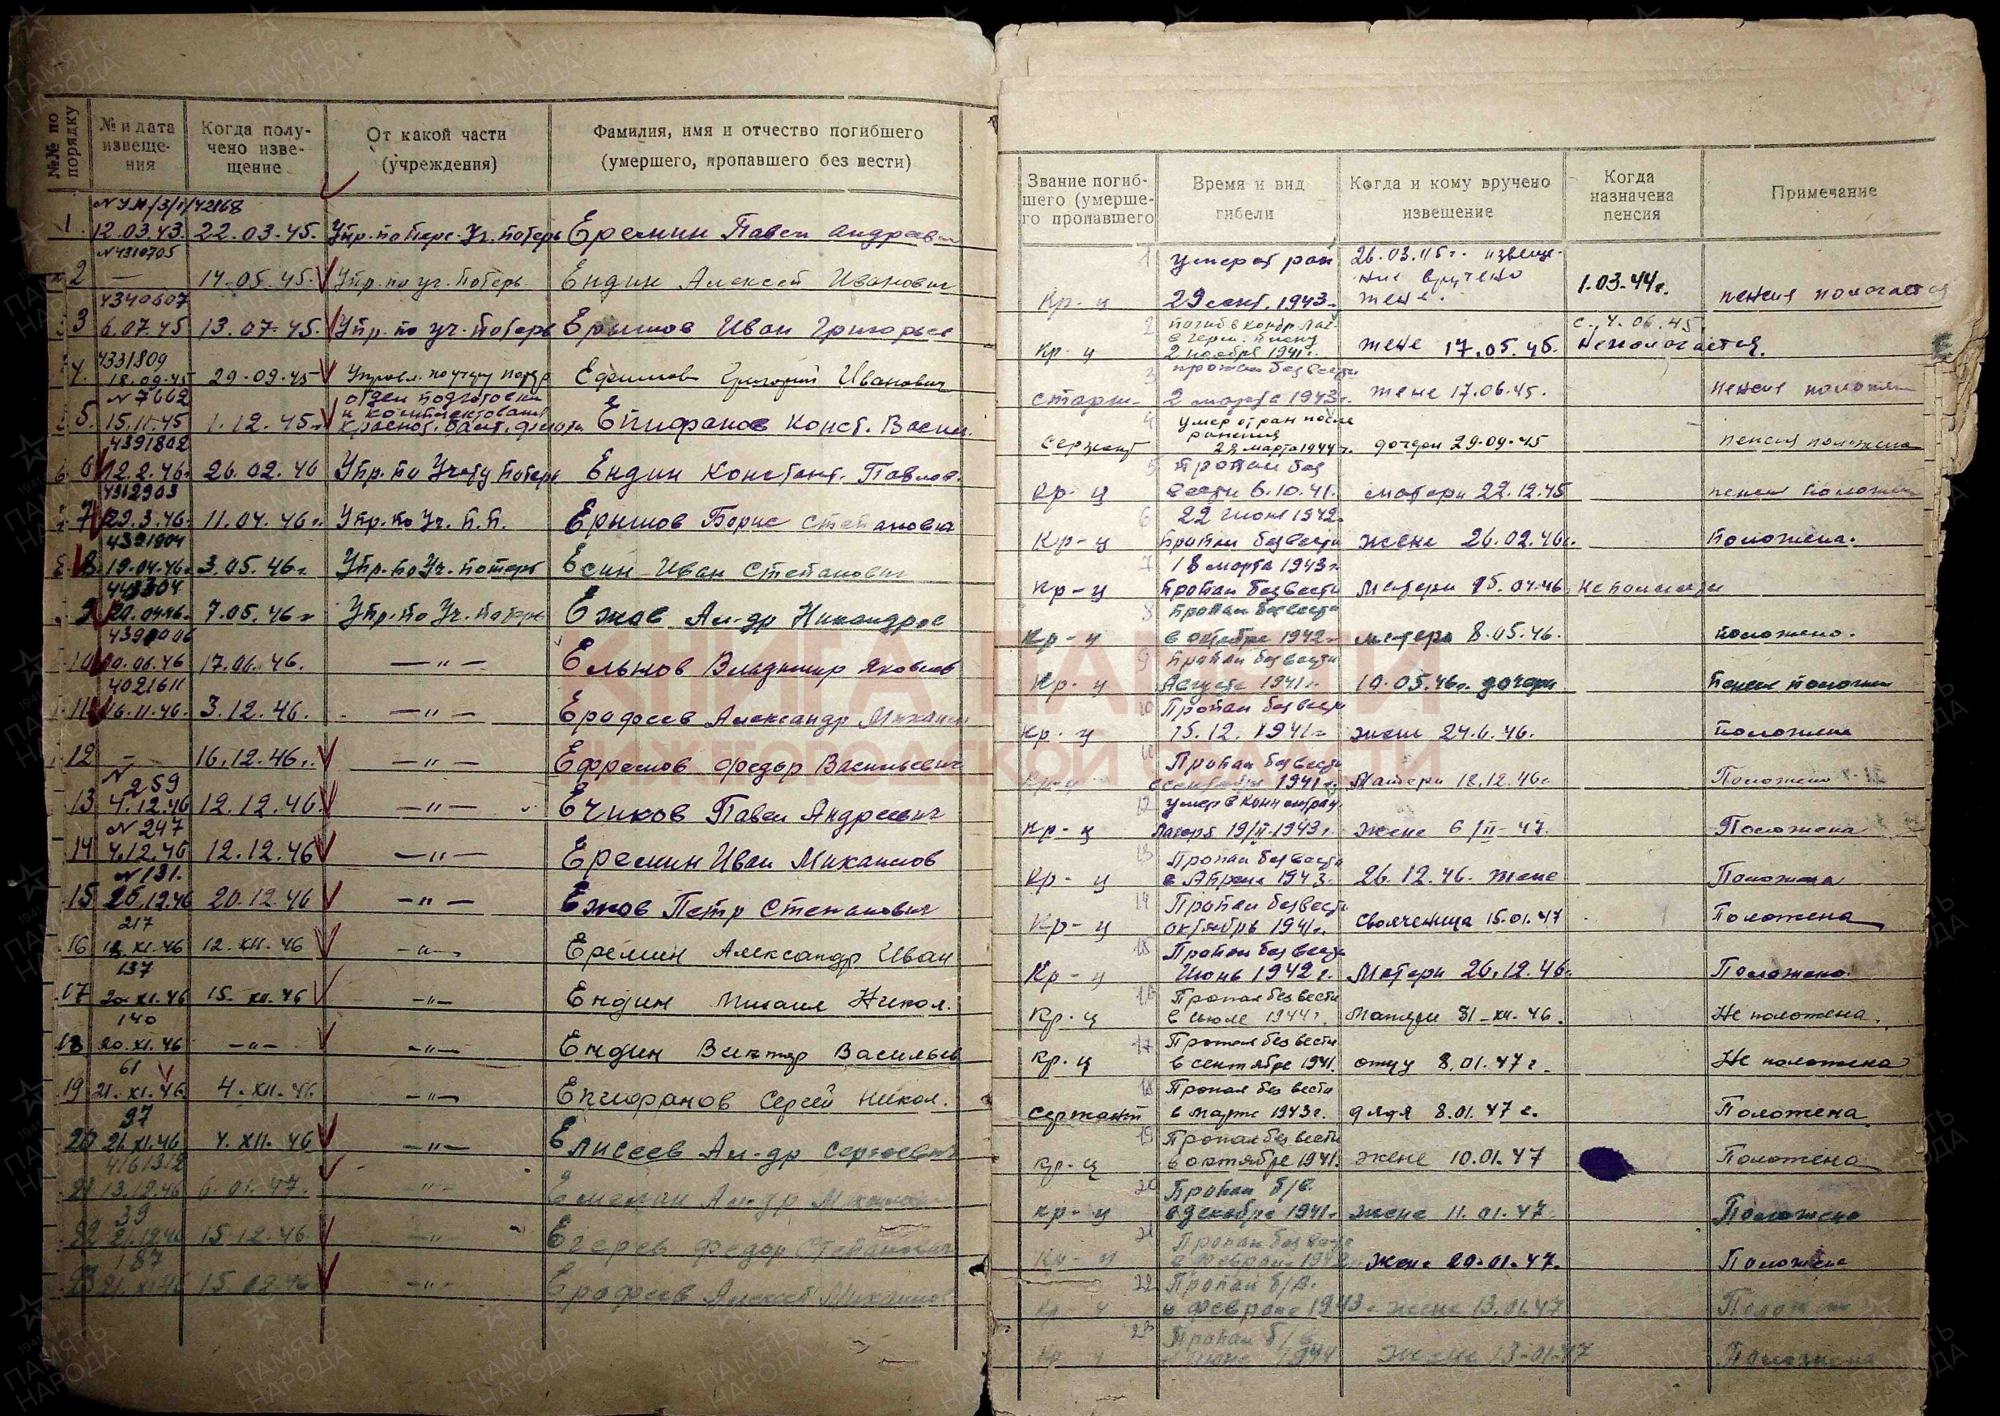 №№ по порядку
№ и дата извеще-ния
Когда полу-чено изве-щение
От какой части (учреждения)
Фамилия, имя и отчество погибшего (умершего, пропавшего без вести)
1 12.03.43. 22.03.45. Упр. по перс. уч. потерь Еремин Павел Андреев
№4310705
2 — 14.05.45 Упр. по уч. потерь Ендин Алексей Иванович
4340607
3 6.07.45 13.07.45. Упр. по уч. потерь Ершов Иван Григорьев
4331809
4. 18.09.45 29.09.45 Управл. по учету потер Ефимов Григорий Иванович
№ 7662 отдел подготовки и комплектования
5. 15.11.45 1.12.45 Епифанов Конст. Васил.
4391802
6 12.2.46. 26.02.46 Упр. по Учету потерь Ендин Констант. Павлов.
4312903
7 29.3.46. 11.04.46г. Упр. по Уч. П.П. Ершов Борис Степанович
4391904
8. 19.04.46г. 3.05.46г. Упр. по Уч. потерь Есин Иван Степанович
7.05.46г Упр. по Уч. потерь Ежов Ал-др Никандров
10 17.06.46. — " — Ельцов Владимир Яковлев
4021611
11 16.11.46. 3.12.46. — " — Ерофеев Александр Михаил
12 — 16.12.46. — " — Ефремов Федор Васильевич
№ 259
13 4.12.46 12.12.46. — " — Ечиков Павел Андреевич
№ 247
14 4.12.46 12.12.46 — " — Еремин Иван Михаилов
№ 131.
15 20.12.46 20.12.46 — " — Ежов Петр Степанович
217
16 18 XI.46 12.XII.46 — " — Еремин Александр Иван
137
17 20.XI.46 15.XII.46 — " — Ендин Михаил Никол.
140
18 20.XI.46 — " — — " — Ендин Виктор Васильев
61
19 21.XI.46 4.XII.46 — " — Епифанов Сергей Никол.
97
20 21.XI.46 4.XII.46 — " — Елисеев Ал-др Сергеевич
4161312
21 13.12.46 6.01.47. — " — Емелин Ал-др Михайлов
39
22 21.12.46 15.12.46 — " — Егерев Федор Степанович
187
23 21.XI.46 — " — Ерофеев Алексей Михаилов
Звание погиб-шего (умерше-го пропавшего
Время и вид гибели
Когда и кому вручено извещение
Когда назначена пенсия
Примечание
1 умер от ран 26.03.45г. извеще-ние вручено
Кр-ц 29 сент. 1943г. жене. 1.03.44г. пенсия пологается
2 погиб в конц. лаг. в герм. плену с. 4.06.45.
Кр-ц 2 ноября 1941г. жене 17.05.45. непологается.
3 пропал без вести
старш. 2 марта 1943г. жене 17.06.45. пенсия положен
4 умер от ран после ранения
сержант 28 марта 1944г. дочери 29.09.45 пенсия положена
5 Пропал без
Кр-ц вести 6.10.41. матери 22.12.45 пенсия положен
6 22 июня 1942г.
Кр-ц Пропал без вести жене 26.02.46г. положена.
7 18 марта 1943г.
Кр-ц Пропал без вести Матери 15.04.46. неположен
8 Пропал без вести
Кр-ц в октябре 1942г. матери 8.05.46. положено.
9 Пропал без вести
Кр-ц Августе 1941г. 10.05.46г. дочери пенсия положен
10 Пропал без вести
Кр-ц 15.12.1941г. жене 24.6.46. положена
11 Пропал без вести
Кр-ц в сентябре 1941г. Матери 18.12.46г Положена
12 умер в концентрац.
Кр-ц лагере 19/II-1943г. жене 6/II-47. Положена
13 Пропал без вести
Кр-ц в Апреле 1943г. 26.12.46. жене Положена
14 Пропал без вести
Кр-ц октябрь 1941г. свояченица 15.01.47 Положена
15 Пропал без вести
Кр-ц Июнь 1942г. Матери 26.12.46. Положено.
16 Пропал без вести
Кр-ц в июле 1944г. Матери 31-XII-46. Не положена.
17 Пропал без вести
Кр-ц в сентябре 1941г. отцу 8.01.47г. Не положена
18 Пропал без вести
сержант в марте 1943г. дядя 8.01.47г. Положена
19 Пропал без вести
Кр-ц в октябре 1941. жене 10.01.47 Положена
20 Пропал б/в.
Кр-ц в декабре 1941г. жене 11.01.47. Положено
21 Пропал без вести
Кр-ц в феврале 1942 жене 20.01.47. Положена
22 Пропал б/в.
Кр-ц в феврале 1943г. жене 13.01.47 Положена
23 Пропал б/в.
Кр-ц в июне 1944 жене 13-01-47 Положена
КНИГА ПАМЯТИ
НИЖЕГОРОДСКОЙ ОБЛАСТИ
ПАМЯТЬ НАРОДА